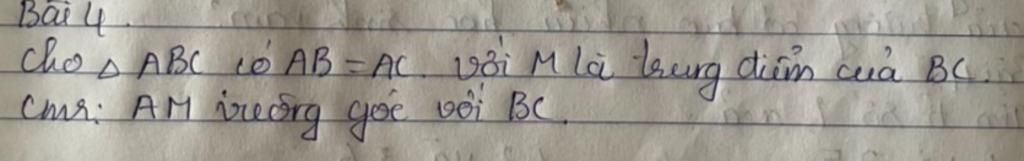 Bài 4
Cho △ ABC có AB = AC. với M là trung điểm của BC.
Cmr: AM vuông góc với BC.